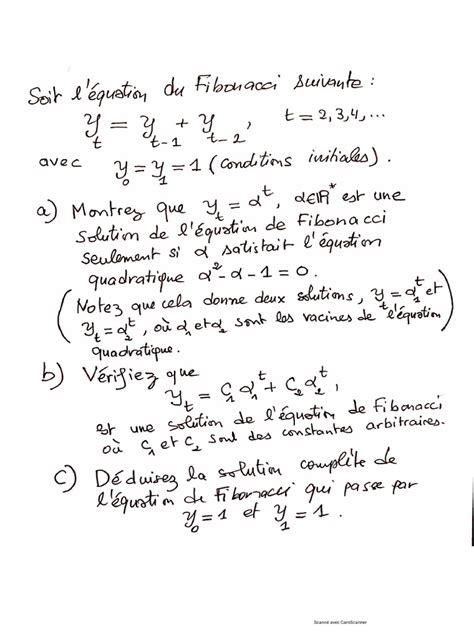 Soit l'équation du Fibonacci suivante :
y_t = y_{t-1} + y_{t-2}, t = 2,3,4,...
avec y_0 = y_1 = 1 (conditions initiales).
a) Montrez que y_t = α^t, α∈ℝ^* est une
solution de l'équation de Fibonacci
seulement si α satisfait l'équation
quadratique α² - α - 1 = 0.
(Notez que cela donne deux solutions, y_t = α_1^t et
y_t = α_2^t, où α_1 et α_2 sont les racines de l'équation
quadratique.)
b) Vérifiez que
y_t = C_1 α_1^t + C_2 α_2^t,
est une solution de l'équation de Fibonacci
où C_1 et C_2 sont des constantes arbitraires.
c) Déduisez la solution complète de
l'équation de Fibonacci qui passe par
y_0 = 1 et y_1 = 1.
Scanné avec CamScanner